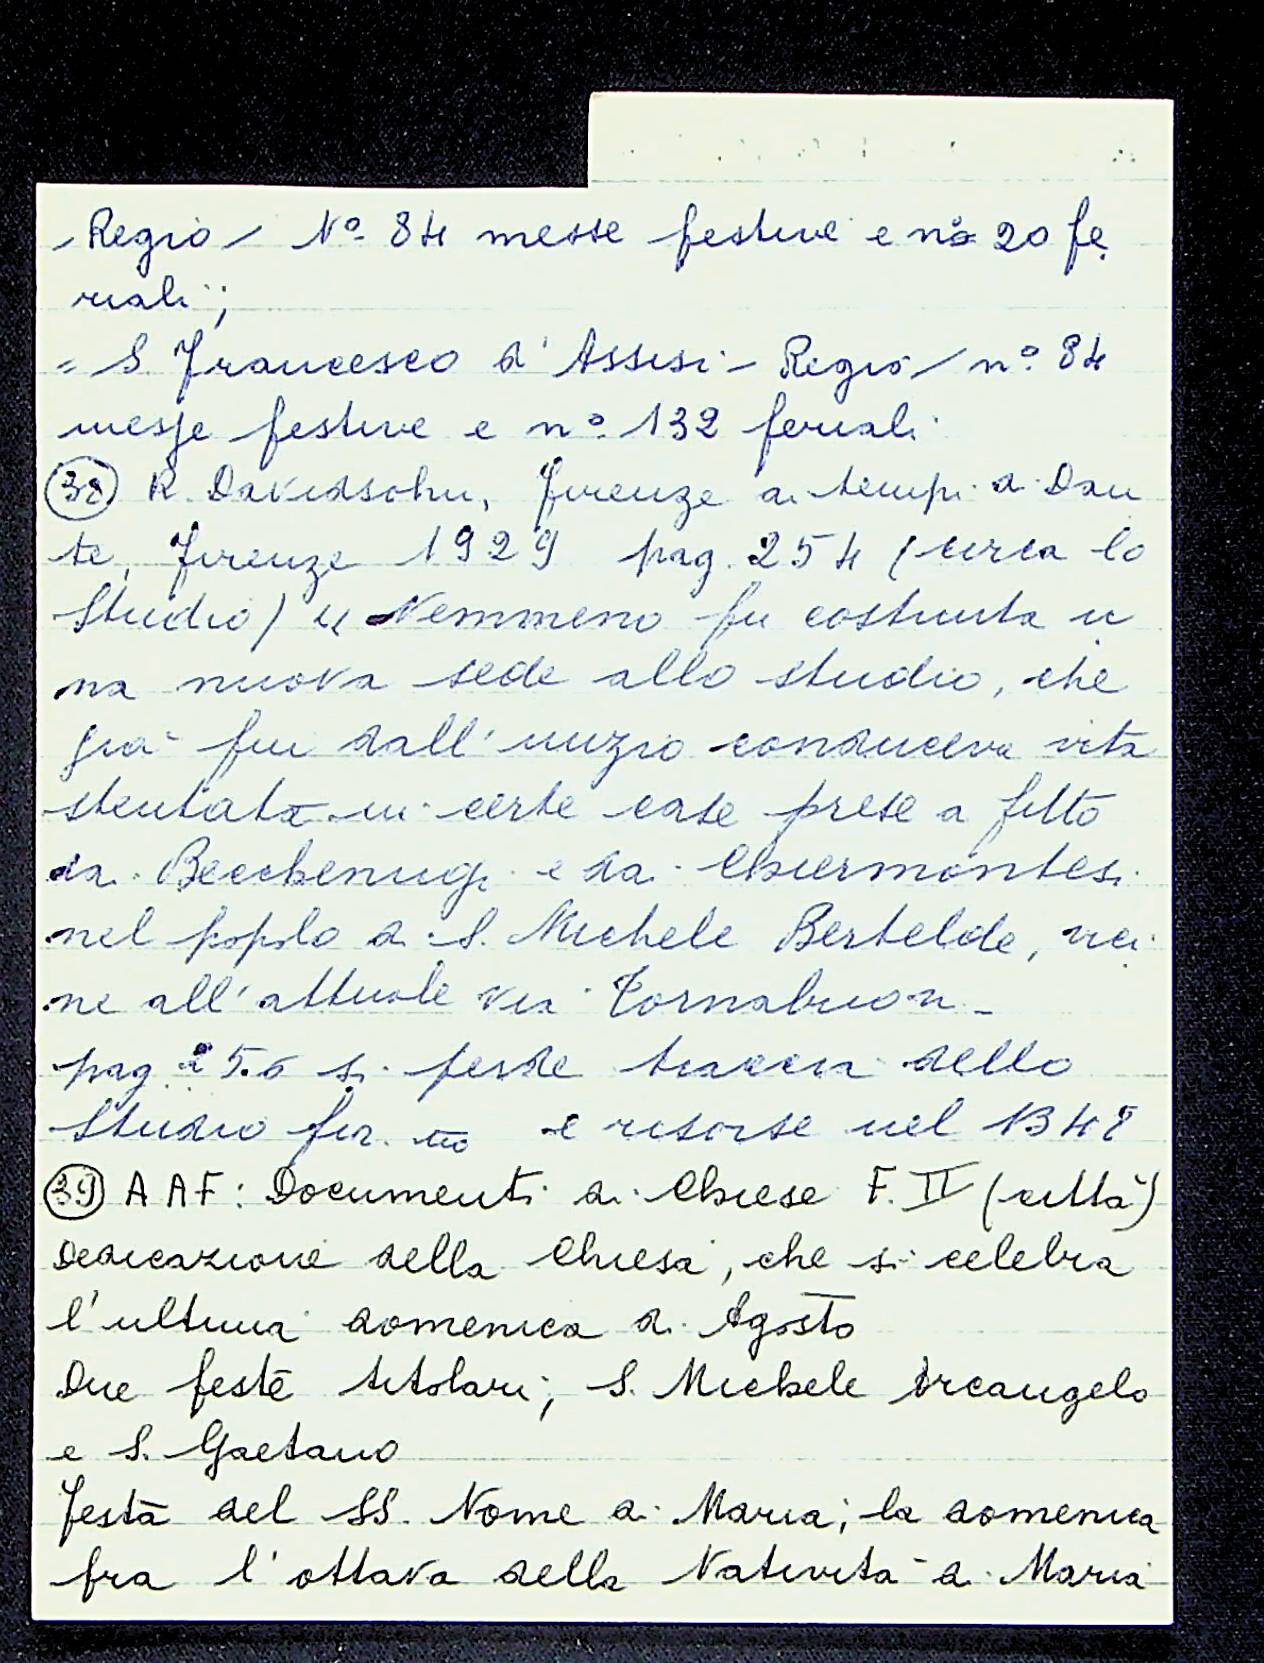 - Regio - Nº 84 messe festive e nº 20 fe
riali;
= S. Francesco d'Assisi - Regio - nº 84
messe festive e nº 132 feriali.
(38) R. Davidsohn, Firenze ai tempi di Dan
te, Firenze 1929 pag. 254 (circa lo
Studio) " Nemmeno fu costruita u
na nuova sede allo studio, che
già fin dall'inizio conduceva vita
stentata in certe case prese a fitto
dai Becchenugi e dai Chiermontesi
nel popolo di S. Michele Bertelde, vici
ne all'attuale via Tornabuoni -
pag. 256 si perde traccia dello
Studio fior.no e risorse nel 1348
(39) AAF: Documenti di Chiese F. II (città)
Dedicazione della Chiesa, che si celebra
l'ultima domenica di Agosto
Due feste titolari; S. Michele Arcangelo
e S. Gaetano
Festa del SS. Nome di Maria; la domenica
fra l'ottava della Natività di Maria